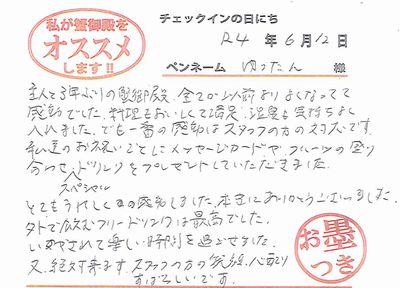 私が蟹御殿を
オススメ
します!!
チェックインの日にち
R4年6月12日
ペンネーム ゆったん 様
主人と3年ぶりの蟹御殿。全てが以前よりよくなってて
感動でした。料理もおいしくて満足、温泉も気持ちよく
入れました。でも一番の感動はスタッフの方の対応です。
私達のお祝いごとにメッセージカードや、フルーツの盛り
合わせ、ドリンクをプレゼントしていただきました。
スペシャル
とてもうれしく 感動しました。本当にありがとうございました。
外で飲むフリードリンクは最高でした。
いやされて楽しい時間を過ごせました。
又、絶対来ます。スタッフの方の笑顔、心配り
すばらしいです。
お墨つき